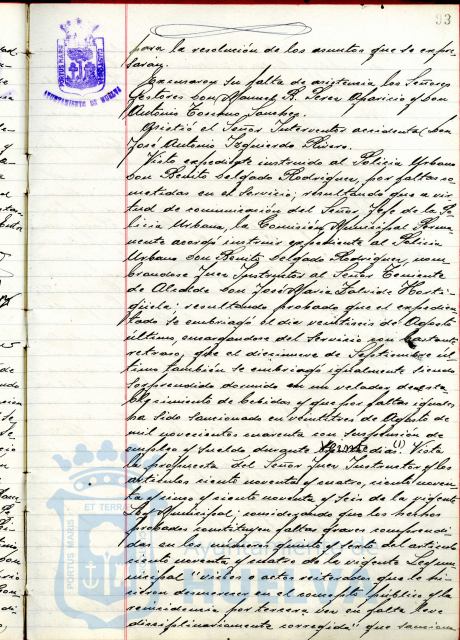 93
para la resolución de los asuntos que se expre-
sarán.
Excusaron su falta de asistencia los Señores
Gestores Don Manuel R. Perez Aparicio y Don
Antonio Toscano Sanchez.
Asistió el Señor Interventor accidental Don
José Antonio Izquierdo Rivero.
Visto expediente instruido al Policia Urbano
Don Benito Delgado Rodriguez, por faltas co-
metidas en el Servicio; resultando que a vir-
tud de comunicación del Señor Jefe de la Po-
licia Urbana, la Comisión Municipal Perma-
nente acordó instruir expediente al Policia
Urbano Don Benito Delgado Rodriguez, nom-
brandose Juez Instructor al Señor Teniente
de Alcalde Don José Maria
resultando probado que el expedien-
tado se embriagó el dia veintiseis de Agosto
último, encargandose del Servicio con bastante
retraso, que el diecinueve de Septiembre úl-
timo también se embriagó igualmente siendo
sorprendido dormido en un velador de esta-
blecimiento de bebidas y que por faltas iguales
ha sido sancionado en veintitres de Agosto de
mil novecientos cuarenta con suspensión de
empleo y sueldo durante dias. (1) Vista
la propuesta del Señor Juez Instructor y los
articulos ciento noventa y cuatro, ciento noven-
ta y cinco y ciento noventa y seis de la vigente
Ley Municipal; considerando que los hechos
probados constituyen faltas graves comprendi-
das en los del articulo
ciento noventa y cuatro de la vigente Ley Mu-
nicipal y visibles actos reiterados que le hi-
cieron desmerecer en el concepto público y la
reincidencia por tercera vez en falta leve
disciplinariamente corregida que sanciona
PORTUS MARIS
AYUNTAMIENTO DE HUELVA
PORTUS MARIS ET TERRAE
Ayuntamiento de
HUELVA